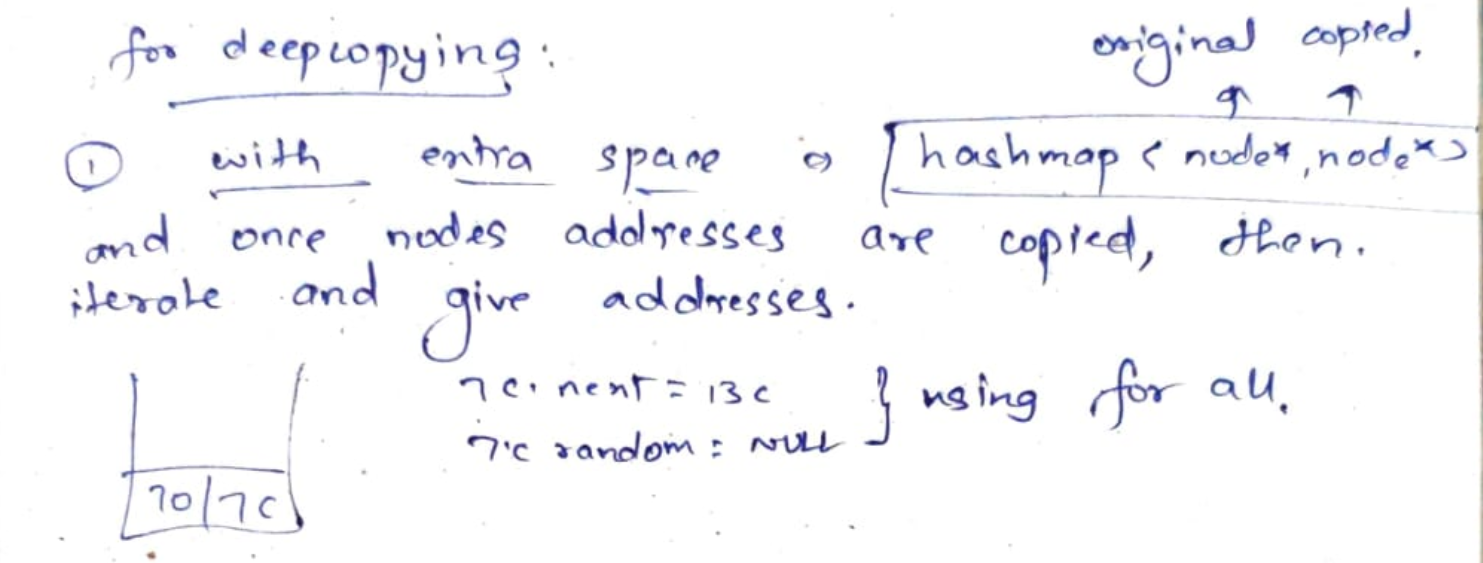 for deepcopying:
original copied.
① with extra space ⇒ hashmap < node*, node*>
and once nodes addresses are copied, then.
iterate and give addresses.
7c. next = 13c } using for all.
7c random = NULL
7o/7c